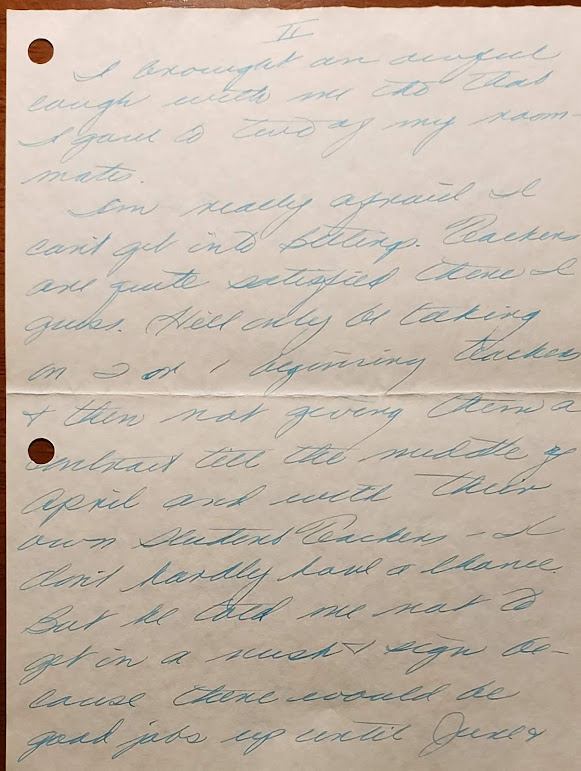 II
I brought an awful
cough with me tho that
I gave to two of my room-
mates.
I'm really afraid I
can't get into Billings. Teachers
are quite satisfied there I
guess. He'll only be taking
on 2 or 1 beginning teachers
& then not giving them a
contract till the middle of
April and with their
own Student Teachers - I
don't hardly have a chance.
But he told me not to
get in a rush & sign be-
cause there would be
good jobs up until June &